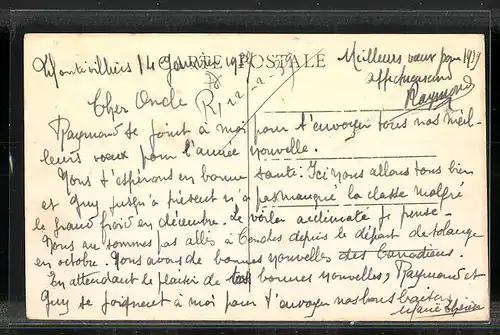 CARTE POSTALE
Montivilliers 14 Janvier 1939
Meilleurs voeux pour 1939
affectueusement
Raymond
Cher Oncle
R 
Raymond se joint à moi pour t'envoyer tous nos meil-
leurs voeux pour l'année nouvelle.
Nous t'espérons en bonne santé. Ici nous allons tous bien
et Guy jusqu'à présent n'a pas manqué la classe malgré
le grand froid en décembre. Le voilà acclimaté je pense.
Nous ne sommes pas allés à Conches depuis le départ de Solange
en octobre. Nous avons de bonnes nouvelles des Canadiens.
En attendant le plaisir de tes bonnes nouvelles, Raymond et
Guy se joignent à moi pour t'envoyer nos bons baisers.
Marie